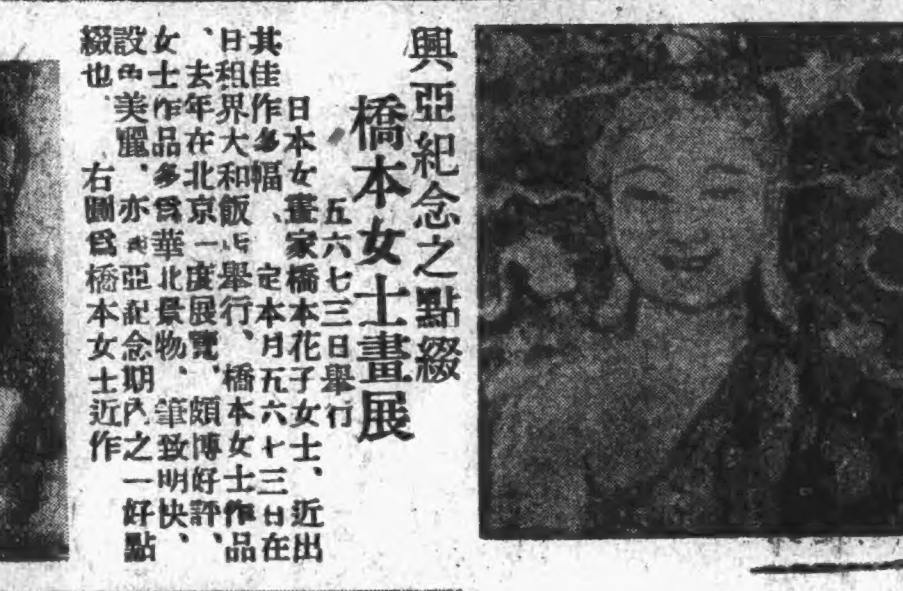 興亞紀念之點綴
橋本女士畫展
五六七三日舉行
日本女畫家橋本花子女士、近出
其佳作多幅、定本月五六七三日在
日租界大和飯店舉行、橋本女士作品
、去年在北京一度展覽、頗博好評、
女士作品多爲華北景物、筆致明快、
設色美麗、亦興亞紀念期內之一好點
綴也、右圖爲橋本女士近作